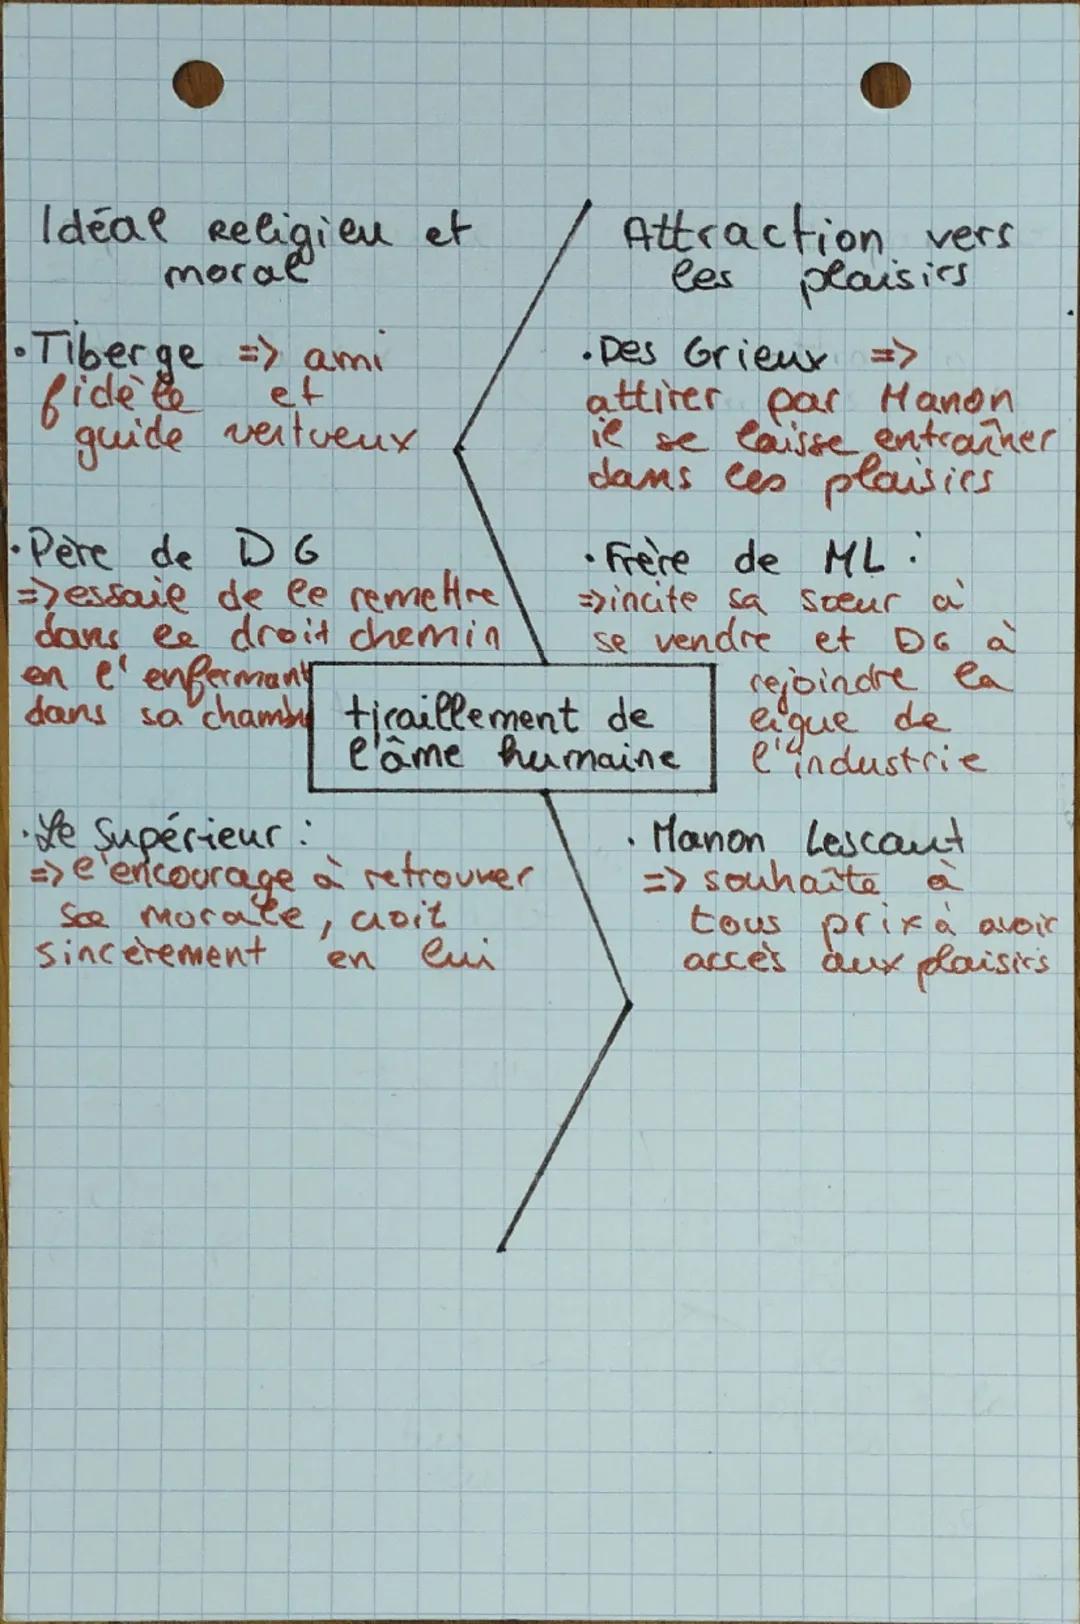 Idéal Religieu et
moral
•Tiberge => ami
fidèle et
guide vertueux
•Père de DG
=> essaie de le remettre
dans le droit chemin
en l'enfermant
dans sa chambre
•Le Supérieur :
=> l'encourage à retrouver
sa morale, croit
sincèrement en lui
tiraillement de
l'âme humaine
Attraction vers
les plaisirs
•Des Grieux =>
attirer par Manon
il se laisse entraîner
dans les plaisirs
•Frère de ML :
=> incite sa sœur à
se vendre et DG à
rejoindre la
ligue de
l'industrie
•Manon Lescaut
=> souhaite à
tous prix à avoir
accès aux plaisirs